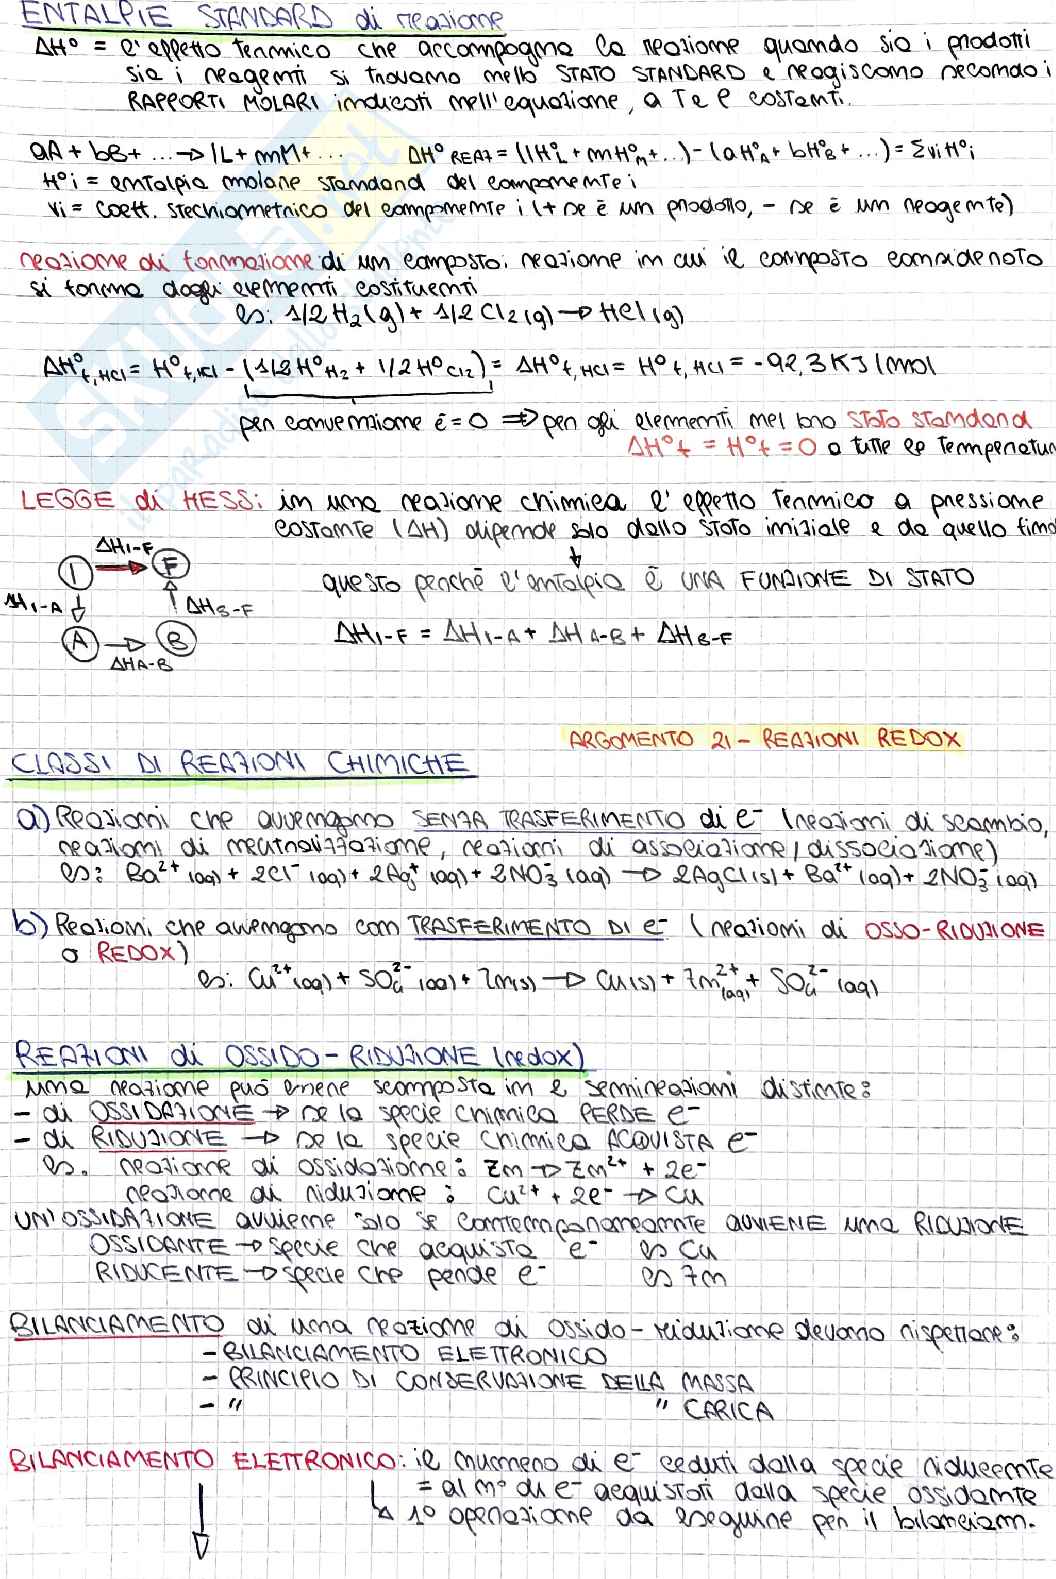 ENTALPIE STANDARD di reazione
ΔH° = l'effetto termico che accompagna la reazione quando sia i prodotti
sia i reagenti si trovano nello STATO STANDARD e reagiscono secondo i
RAPPORTI MOLARI indicati nell'equazione, a T e P costanti.
aA + bB + ... → lL + mM + ... ΔH° REAZ = (lH°L + mH°M + ...) - (aH°A + bH°B + ...) = Σνi H°i
H°i = entalpia molare standard del componente i
νi = coeff. stechiometrico del componente i (+ se è un prodotto, - se è un reagente)
reazione di formazione di un composto: reazione in cui il composto considerato
si forma dagli elementi costituenti
es: 1/2 H₂(g) + 1/2 Cl₂(g) → HCl(g)
ΔH°f,HCl = H°f,HCl - (1/2 H°H₂ + 1/2 H°Cl₂) = ΔH°f,HCl = H°f,HCl = -92,3 KJ/mol
per convenzione è = 0 ⇒ per gli elementi nel loro stato standard
ΔH°f = H°f = 0 a tutte le temperatur
LEGGE di HESS: in una reazione chimica l'effetto termico a pressione
costante (ΔH) dipende solo dallo stato iniziale e da quello fina
ΔHI-F
I F
questo perché l'entalpia è UNA FUNZIONE DI STATO
ΔHI-A ΔHB-F
A B ΔHI-F = ΔHI-A + ΔHA-B + ΔHB-F
ΔHA-B
ARGOMENTO 21 - REAZIONI REDOX
CLASSI DI REAZIONI CHIMICHE
a) Reazioni che avvengono SENZA TRASFERIMENTO di e⁻ (reazioni di scambio,
reazioni di neutralizzazione, reazioni di associazione/dissociazione)
es: Ba²⁺(aq) + 2Cl⁻(aq) + 2Ag⁺(aq) + 2NO₃⁻(aq) → 2AgCl(s) + Ba²⁺(aq) + 2NO₃⁻(aq)
b) Reazioni che avvengono con TRASFERIMENTO DI e⁻ (reazioni di OSSO-RIDUZIONE
o REDOX)
es: Cu²⁺(aq) + SO₄²⁻(aq) + Zn(s) → Cu(s) + Zn²⁺(aq) + SO₄²⁻(aq)
REAZIONI di OSSIDO-RIDUZIONE (redox)
una reazione può essere scomposta in 2 semireazioni distinte:
- di OSSIDAZIONE → se la specie chimica PERDE e⁻
- di RIDUZIONE → se la specie chimica ACQUISTA e⁻
es. reazione di ossidazione: Zn → Zn²⁺ + 2e⁻
reazione di riduzione: Cu²⁺ + 2e⁻ → Cu
UN'OSSIDAZIONE avviene solo se contemporaneamente AVVIENE una RIDUZIONE
OSSIDANTE → specie che acquista e⁻ es Cu
RIDUCENTE → specie che perde e⁻ es Zn
BILANCIAMENTO di una reazione di ossido-riduzione devono rispettare:
- BILANCIAMENTO ELETTRONICO
- PRINCIPIO DI CONSERVAZIONE DELLA MASSA
- " " CARICA
BILANCIAMENTO ELETTRONICO: il numero di e⁻ ceduti dalla specie riducente
= al n° di e⁻ acquistati dalla specie ossidante
1° operazione da eseguire per il bilanciam.